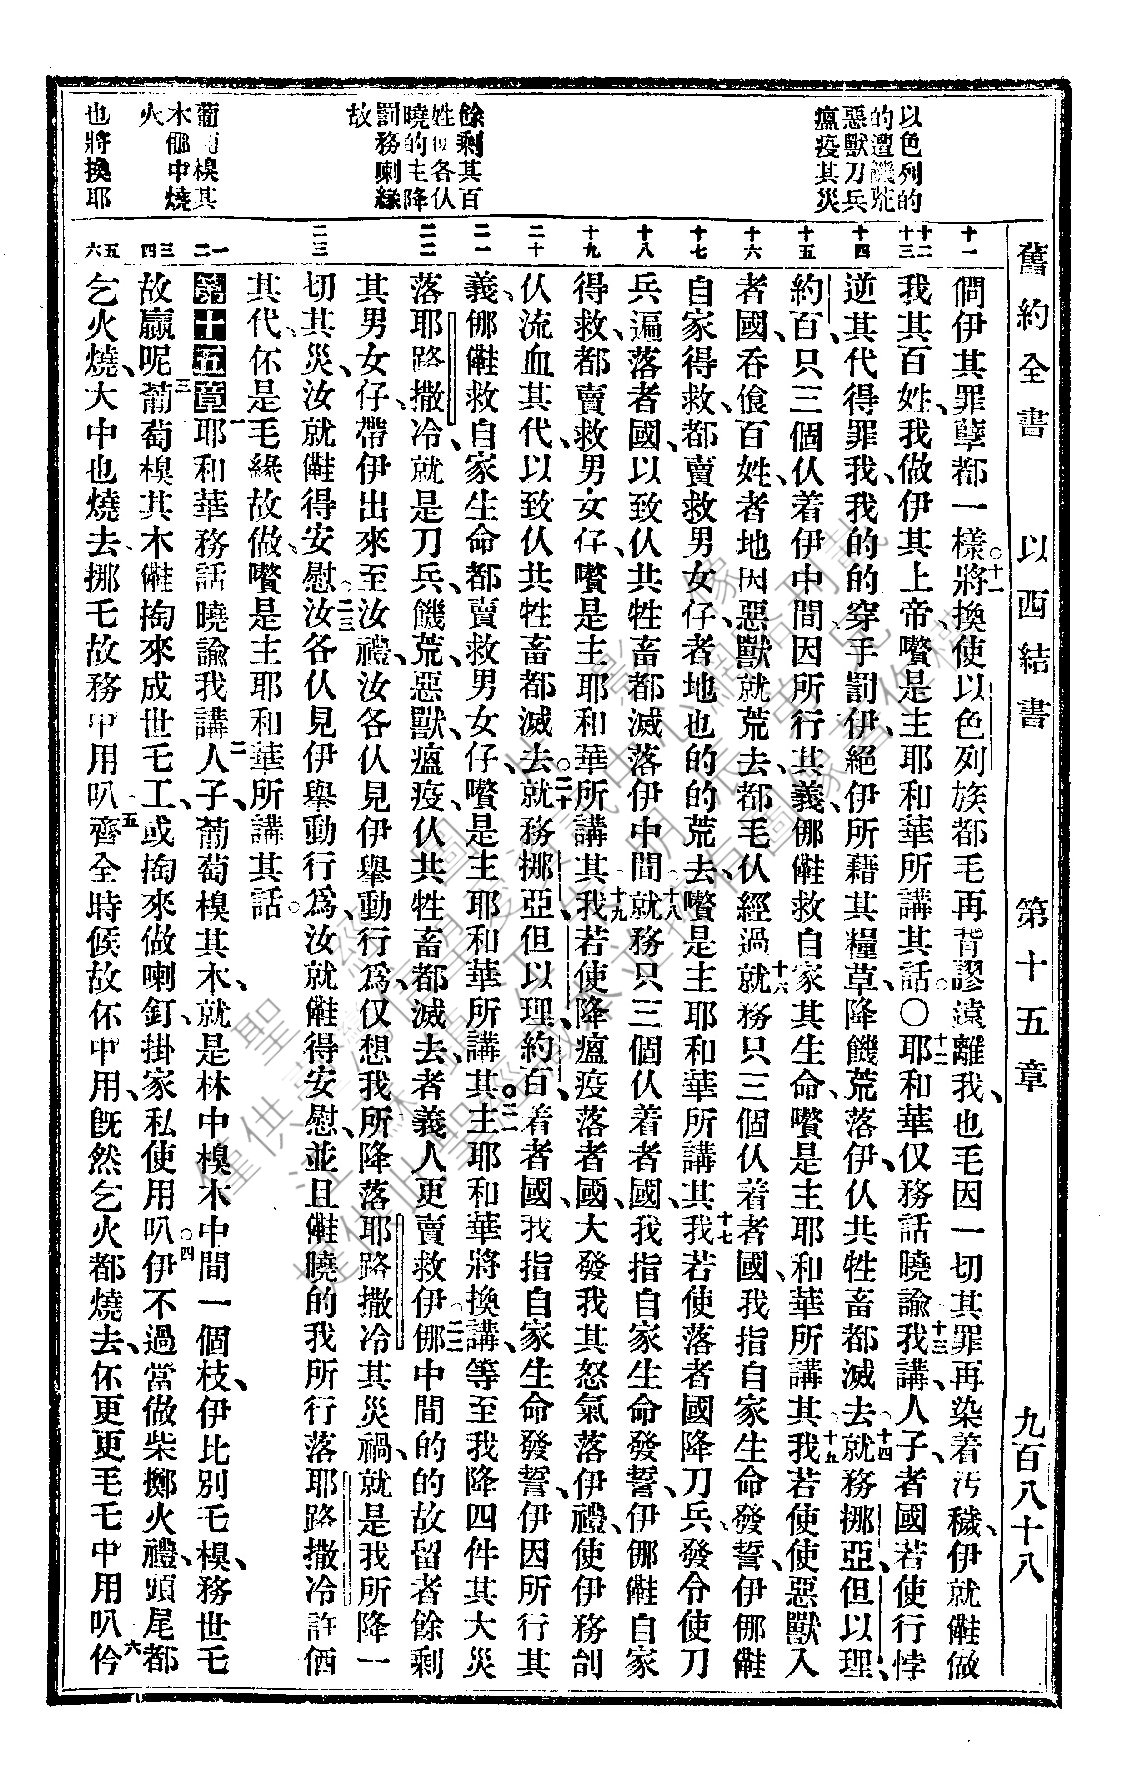 舊約全書　以西結書　第十五章　九百八十八
以色列的
的遭饑荒
惡獸刀兵
瘟疫其災
餘剩其百
姓使各仈
曉的主降
罰務喇緣
故
葡萄模其
木㑚中燒
火
也將換耶
十一
十二
十三
十四
十五
十六
十七
十八
十九
二十
二一
二二
二三
一
二
三
四
五
六
㑚伊其罪孽都一樣將換使以色列族都毛再背謬遠離我也毛因一切其罪再染着汚穢伊就㒰做
我其百姓我做伊其上帝嚽是主耶和華所講其話○耶和華仅務話曉諭我講人子者國若使行悖
逆其代得罪我我的的穿手罰伊絕伊所藉其糧草降饑荒落伊仈共牲畜都滅去就務挪亞但以理
約百只三個仈着伊中間因所行其義㑚㒰救自家其生命嚽是主耶和華所講其我若使使惡獸入
者國吞飡百姓者地因惡獸就荒去都毛仈經過就務只三個仈着者國我指自家生命發誓伊㑚㒰
自家得救都賣救男女仔者地也的的荒去嚽是主耶和華所講其我若使落者國降刀兵發令使刀
兵遍落者國以致仈共牲畜都滅落伊中間就務只三個仈着者國我指自家生命發誓伊㑚㒰自家
得救都賣救男女仔嚽是主耶和華所講其我若使降瘟疫落者國大發我其怒氣落伊禮使伊務剖
仈流血其代以致仈共牲畜都滅去就務挪亞但以理約百着者國我指自家生命發誓伊因所行其
義㑚㒰救自家生命都賣救男女仔嚽是主耶和華所講其主耶和華將換講等至我降四件其大災
落耶路撒冷就是刀兵饑荒惡獸瘟疫仈共牲畜都滅去者義人更賣救伊㑚中間的的故留者餘剩
其男女仔帶伊出來至汝禮汝各仈見伊舉動行爲仅想我所降落耶路撒冷其災禍就是我所降一
切其災汝就㒰得安慰汝各仈見伊舉動行爲汝就㒰得安慰並且㒰曉的我所行落耶路撒冷許価
其代伓是毛緣故做嚽是主耶和華所講其話
第十五章耶和華務話曉諭我講人子葡萄模其木就是林中模木中間一個枝伊比別毛模務世毛
故贏呢葡萄模其木㒰掏來成世乇工或掏來做喇釘掛家私使用叭伊不過當做柴擲火禮頭尾都
乞火燒大中也燒去挪毛故務中用叭齊全時候故伓中用旣然乞火都燒去伓更更毛乇中用叭伶